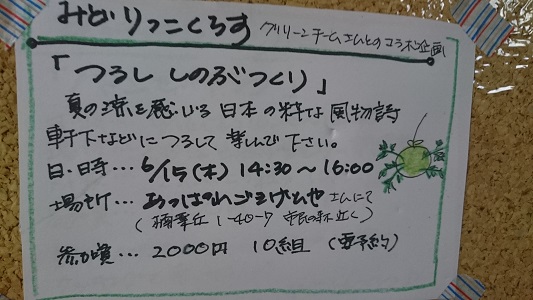 みどりっこくらす グリーンチームさんとのコラボ企画
「つるし しのぶづくり」
真の涼を感じる日本の粋な風物詩
軒下などにつるして楽しんで下さい。
日・時… 6/15(木) 14:30〜16:00
場所… あっぱれ さんにて
( 1-40-7 市民の森近く)
参加費… 2000円 10組 (要予約)